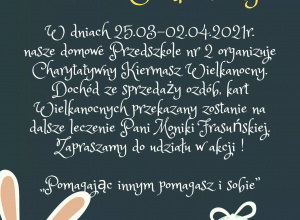 W dniach 25.03-02.04.2021r.
nasze domowe Przedszkole nr 2 organizuje
Charytatywny Kiermasz Wielkanocny.
Dochód ze sprzedaży ozdób, kart
Wielkanocnych przekazany zostanie na
dalsze leczenie Pani Moniki Frasuńskiej,
Zapraszamy do udziału w akcji !
„Pomagając innym pomagasz i sobie”